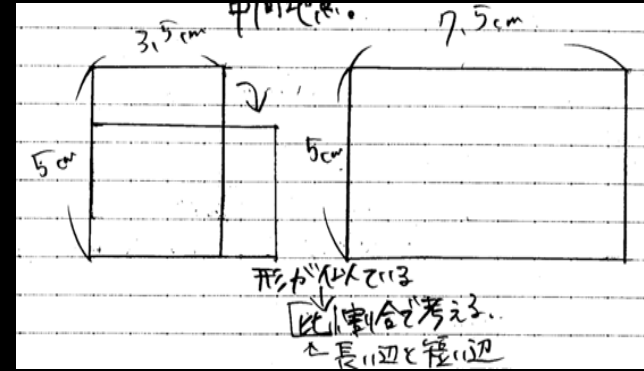 3,5cm
7,5cm
5cm
5cm
形が似ている
↓
比割合で考える.
← 長い辺と短い辺